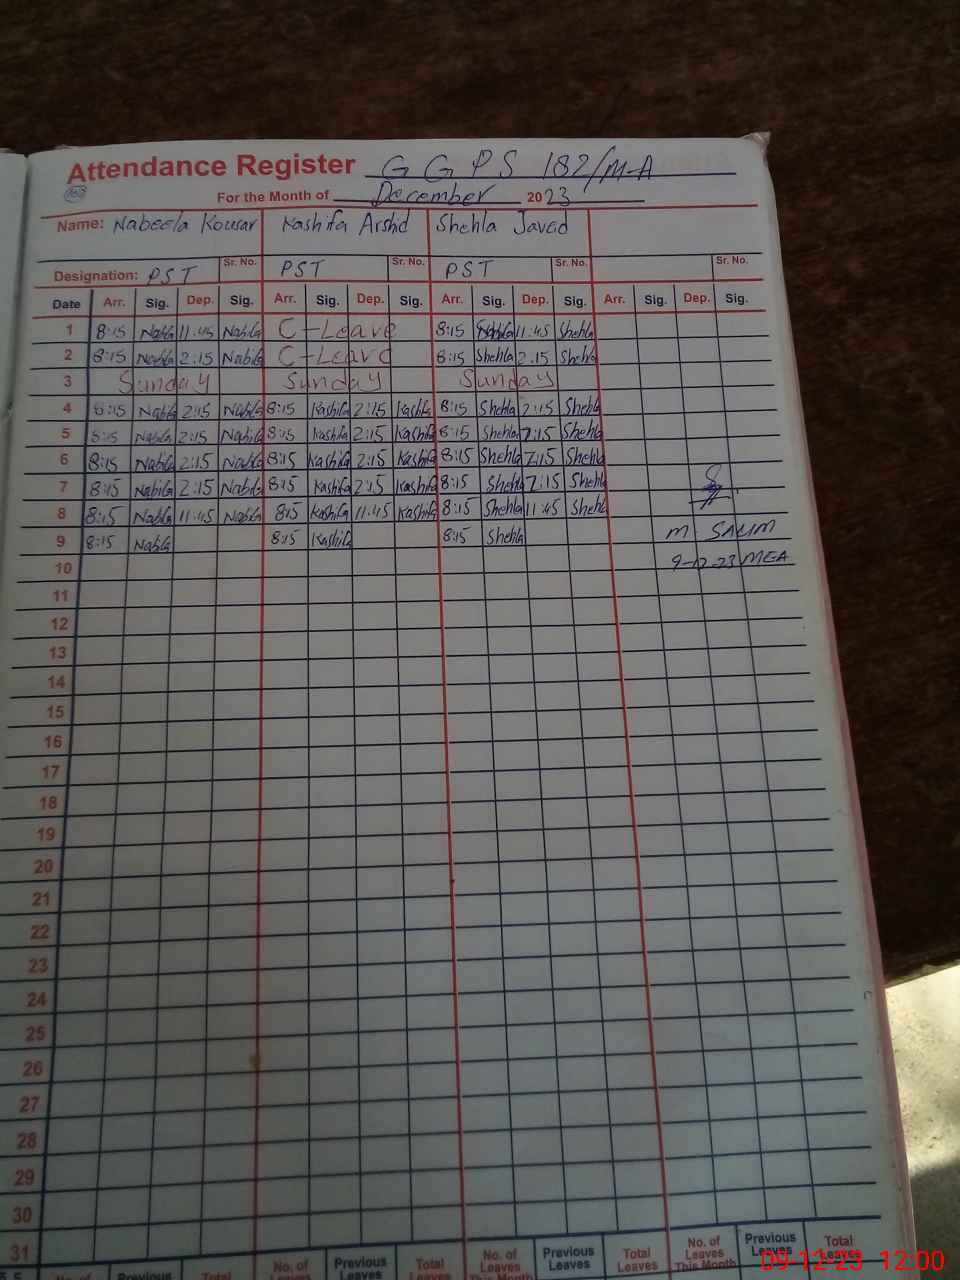 Attendance Register G G P S 182/M-A
For the Month of December 2023
Name: Nabeela Kousar Kashifa Arshid Shehla Javed
Sr. No. Sr. No. Sr. No. Sr. No.
Designation: PST PST PST
Date Arr. Sig. Dep. Sig. Arr. Sig. Dep. Sig. Arr. Sig. Dep. Sig. Arr. Sig. Dep. Sig.
1 8:15 Nabila 11:45 Nabila C-Leave 8:15 Shehla 11:45 Shehla
2 8:15 Nabila 2:15 Nabila C-Leave 8:15 Shehla 2:15 Shehla
3 Sunday Sunday Sunday
4 8:15 Nabila 2:15 Nabila 8:15 Kashifa 2:15 Kashifa 8:15 Shehla 2:15 Shehla
5 8:15 Nabila 2:15 Nabila 8:15 Kashifa 2:15 Kashifa 8:15 Shehla 2:15 Shehla
6 8:15 Nabila 2:15 Nabila 8:15 Kashifa 2:15 Kashifa 8:15 Shehla 2:15 Shehla
7 8:15 Nabila 2:15 Nabila 8:15 Kashifa 2:15 Kashifa 8:15 Shehla 2:15 Shehla
8 8:15 Nabila 11:45 Nabila 8:15 Kashifa 11:45 Kashifa 8:15 Shehla 11:45 Shehla
9 8:15 Nabila 8:15 Kashifa 8:15 Shehla M SALIM
10 9-12-23 MEA
11
12
13
14
15
16
17
18
19
20
21
22
23
24
25
26
27
28
29
30
31
No. of Leaves This Month Previous Leaves Total Leaves No. of Leaves This Month Previous Leaves Total Leaves
09-12-23 12:00